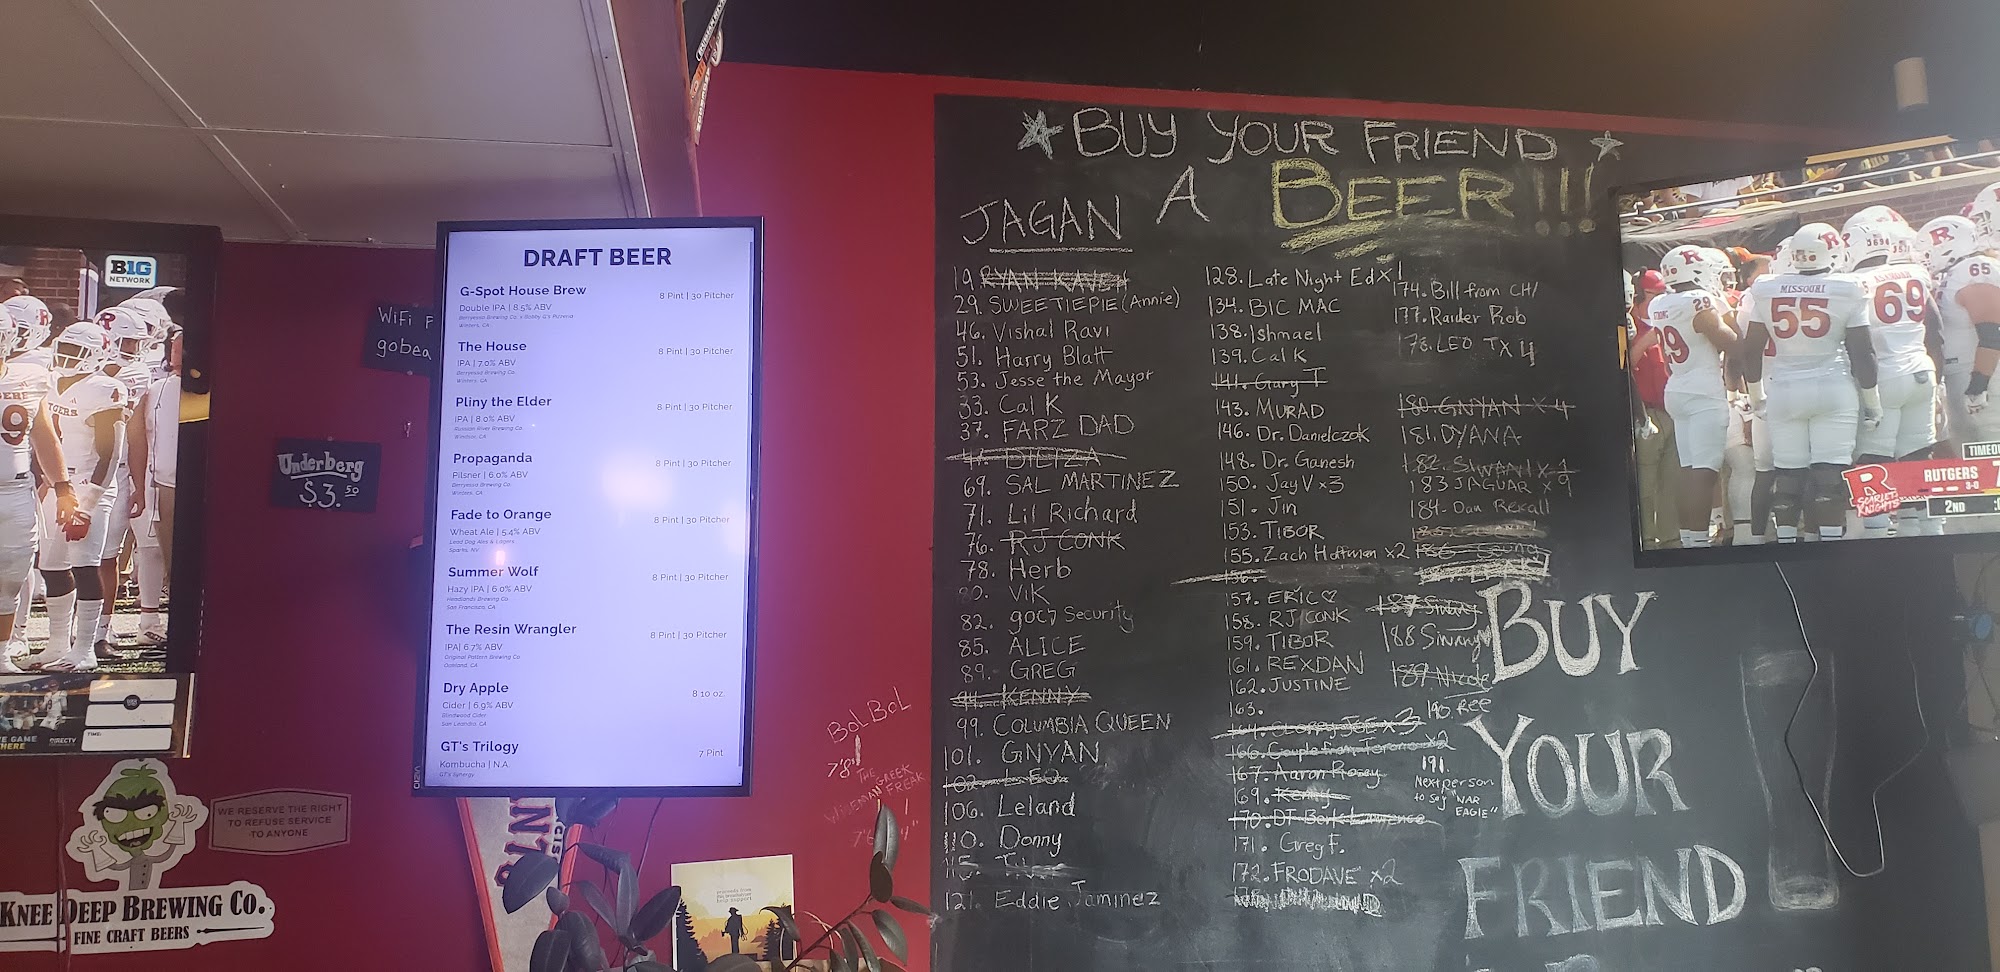 B1G
NETWORK
WiFi P
gobea
Underberg
$3.50
DRAFT BEER
G-Spot House Brew
8 Pint | 30 Pitcher
Double IPA | 8.5% ABV
Berryessa Brewing Co. x Bobby G's Pizzeria
Winters, CA
The House
8 Pint | 30 Pitcher
IPA | 7.0% ABV
Berryessa Brewing Co.
Winters, CA
Pliny the Elder
8 Pint | 30 Pitcher
IPA | 8.0% ABV
Russian River Brewing Co.
Windsor, CA
Propaganda
8 Pint | 30 Pitcher
Pilsner | 6.0% ABV
Berryessa Brewing Co.
Winters, CA
Fade to Orange
8 Pint | 30 Pitcher
Wheat Ale | 5.4% ABV
Lead Dog Ales & Lagers
Sparks, NV
Summer Wolf
8 Pint | 30 Pitcher
Hazy IPA | 6.0% ABV
Headlands Brewing Co.
San Francisco, CA
The Resin Wrangler
8 Pint | 30 Pitcher
IPA| 6.7% ABV
Original Pattern Brewing Co.
Oakland, CA
Dry Apple
8 10 oz.
Cider | 6.9% ABV
Blindwood Cider
San Leandro, CA
GT's Trilogy
7 Pint
Kombucha | N.A.
GT's Synergy
VIZIO
WE RESERVE THE RIGHT
TO REFUSE SERVICE
TO ANYONE
KNEE DEEP BREWING CO.
FINE CRAFT BEERS
DIRECTV
TIME:
BOL BOL
7'8"
THE
GREEK
FREAK
BUY YOUR FRIEND
A BEER!!!
JAGAN
19. RYAN
29. SWEETIEPIE (Annie)
46. Vishal Ravi
51. Harry Blatt
53. Jesse the Mayor
33. Cal K
37. FARZ DAD
69. SAL MARTINEZ
71. Lil Richard
76. RJ CONK
78. Herb
80. ViK
82. goch Security
85. ALICE
89. GREG
94. KENNY
99. COLUMBIA QUEEN
101. GNYAN
102.
106. Leland
110. Donny
115.
121. Eddie Jaminez
128. Late Night Ed x1
134. BIG MAC
138. Ishmael
139. Cal K
141. Gary T
143. MURAD
146. Dr. Danielczok
148. Dr. Ganesh
150. Jay V x3
151. Jin
153. TIBOR
155. Zach Hoffman x2
156.
157. ERIC♡
158. RJ CONK
159. TIBOR
161. REXDAN
162. JUSTINE
163.
164. SLOPPY JOE x3
166. Couple from Toronto x2
167. Aaron Rosey
169. Kenny
170. DT Bork Lawrence
171. Greg F.
172. FRODAVE x2
174. Bill from CH/
177. Raider Rob
178. LEO TX 4
180. GNYAN x 4
181. DYANA
182. SIWANI x 1
183 JAGUAR x 9
184. Dan Rexall
187. Sinny
188 Sinny
189. Nicole
190. Ree
191.
Next person
to say "WAR
EAGLE"
BUY
YOUR
FRIEND
29
MISSOURI
55
69
65
TIMEOU
RUTGERS
3-0
R
SCARLET
KNIGHTS
2ND